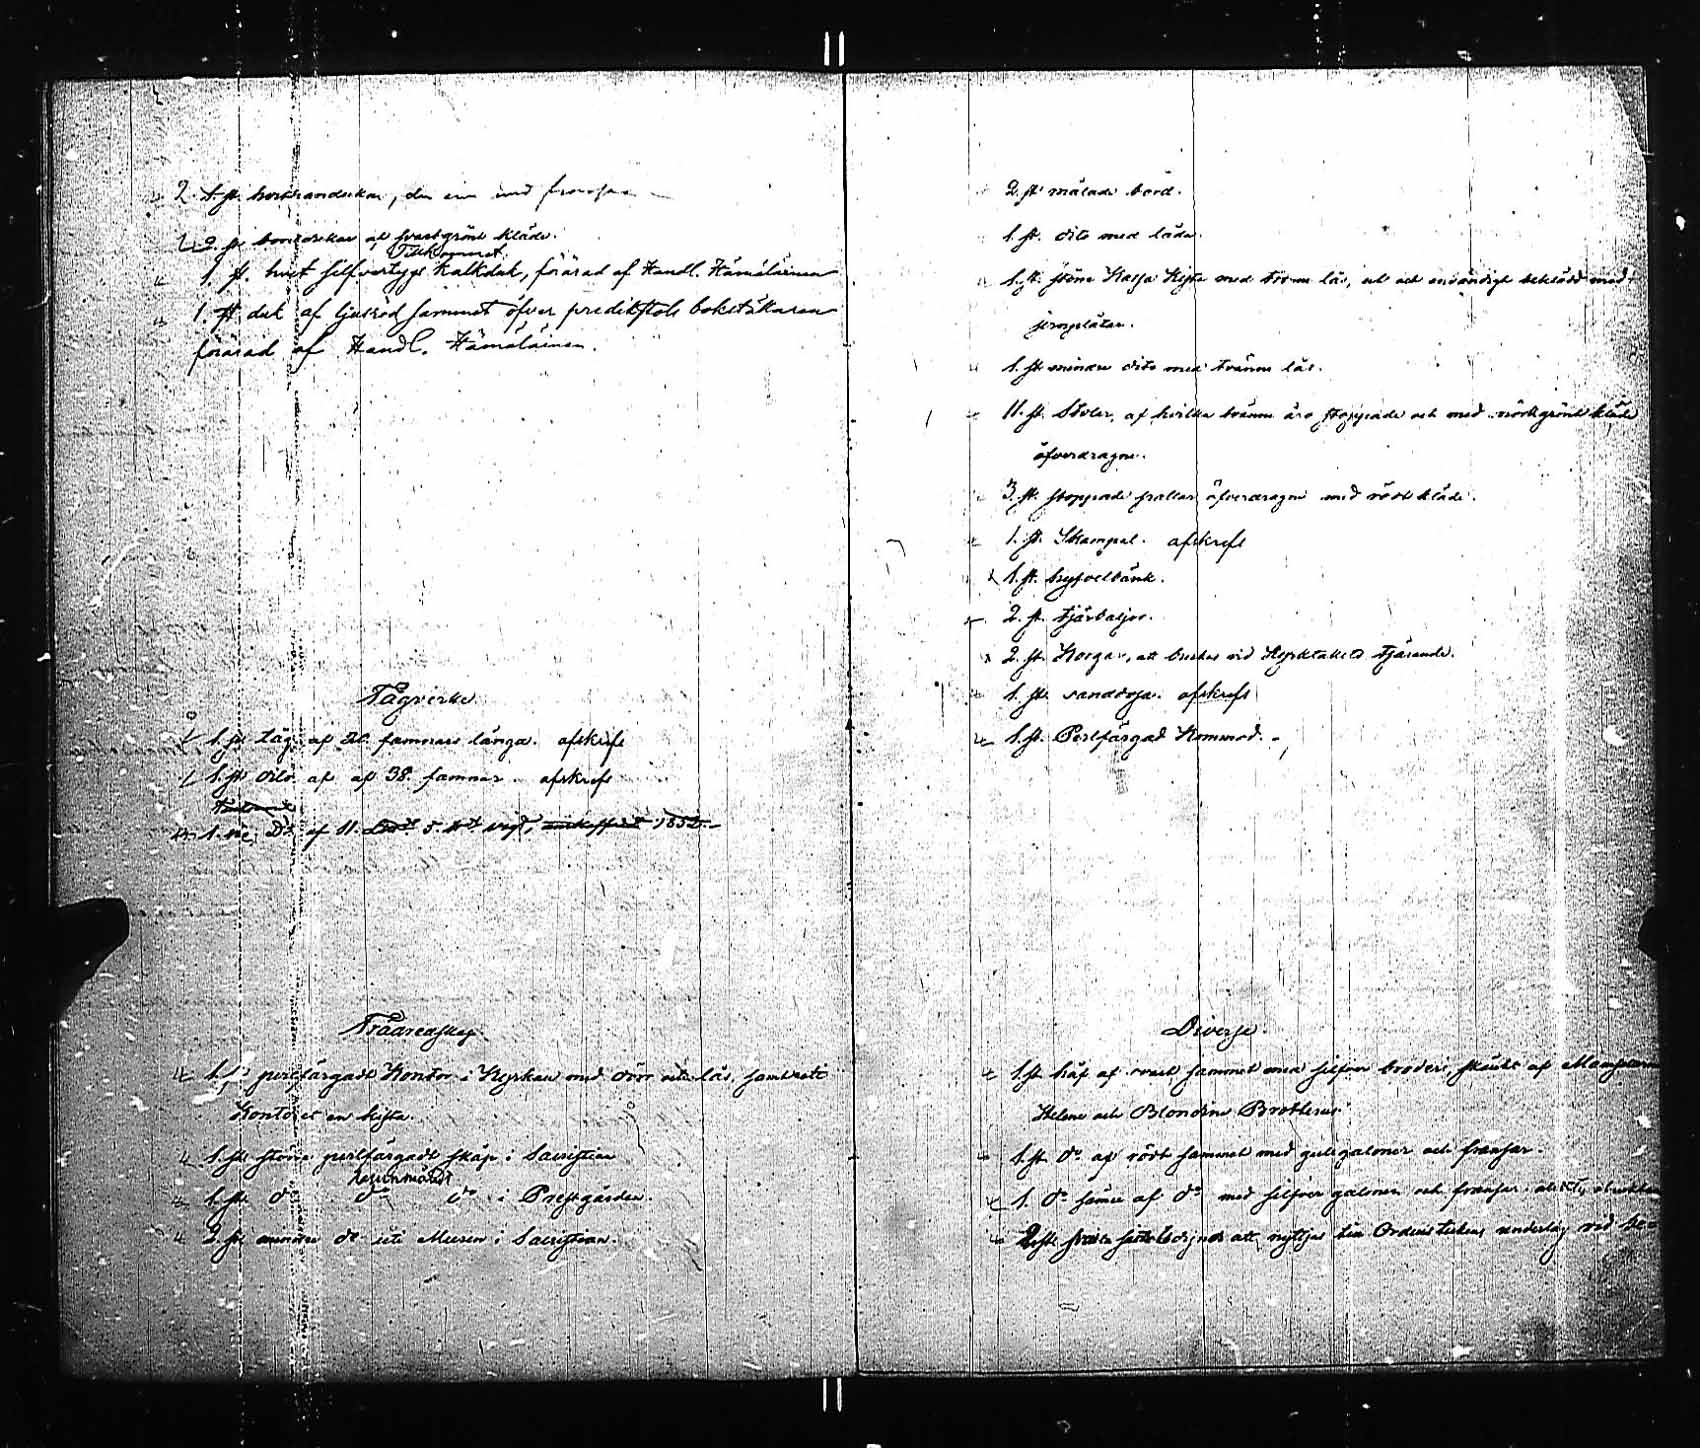 2 st. handdukar, den ena med fransar
2 st. borddukar af svartgrönt kläde.
Tillkommit
1. st. hvit silfvertygs kalkduk, förärad af Handl. Hämäläinen
1. st duk af ljusröd sammet öfver predikstols bokstäkaren
förärad af Handl. Hämäläinen.
Tågvirke
1. st. tåg af famnars länga. afskrifs
1. st. dito af af 38. famnar. afskrifs
1. D:o af 11. 5. 1852.
Trädredskap.
1. st. perlfärgadt Kontor i Kyrkan med dörr och lås, samt uti
Kontoret en kista.
1. st. större perlfärgadt skåp i Sacristian
1. st. d:o d:o i Prestgården.
2. st. mindre d:o uti Muren i Sacristian.
2. st. målade bord.
1. st. dito med låda.
1. st. större Kassa Kista med lås, ut och invändigt beklädd med
jernplåtar.
1. st. mindre dito med tvänne lås.
11. st. Stolar, af hvilka tvänne äro stoppade och med mörkgrönt kläde
öfverdragne.
3. st. stoppade pallar öfverdragne med rödt kläde.
1. st. Skampal. afskrifs
1. st. hyfvelbänk.
2. st. tjärbaljor.
2. st. Korgar, att brukas vid Kyrktakets tjärande.
1. st. sanddosa. afskrifs
1. st. Perlfärgad Kommod.
Diverse.
1. st. håf af svart sammet med silfver broderi, skänkt af
Helene och Blondine Brotherus.
1. st. d:o af rödt sammet med gulegaloner och fransar.
1. d:o af d:o med silfver galoner och fransar,
2. st. att nyttjas till Ordens teckens underlag vid be-